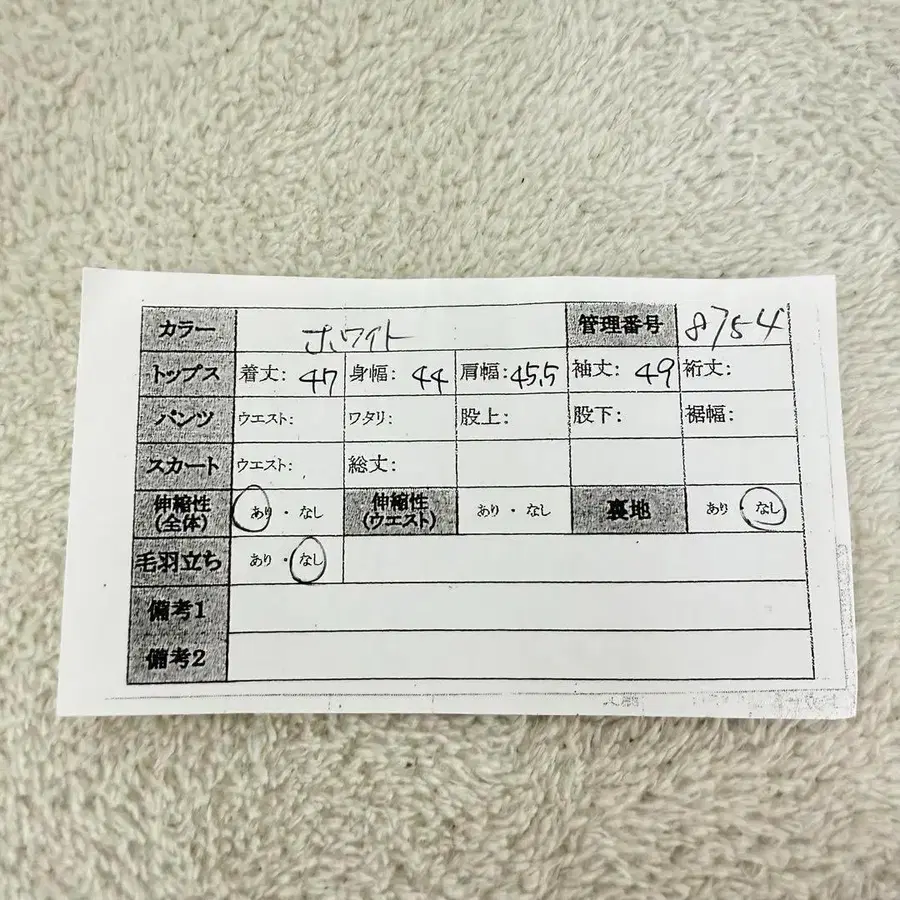 カラー ホワイト 管理番号 8754
トップス 着丈: 47 身幅: 44 肩幅: 45.5 袖丈: 49 裄丈:
パンツ ウエスト: ワタリ: 股上: 股下: 裾幅:
スカート ウエスト: 総丈:
伸縮性(全体) あり・なし 伸縮性(ウエスト) あり・なし 裏地 あり・なし
毛羽立ち あり・なし
備考1
備考2